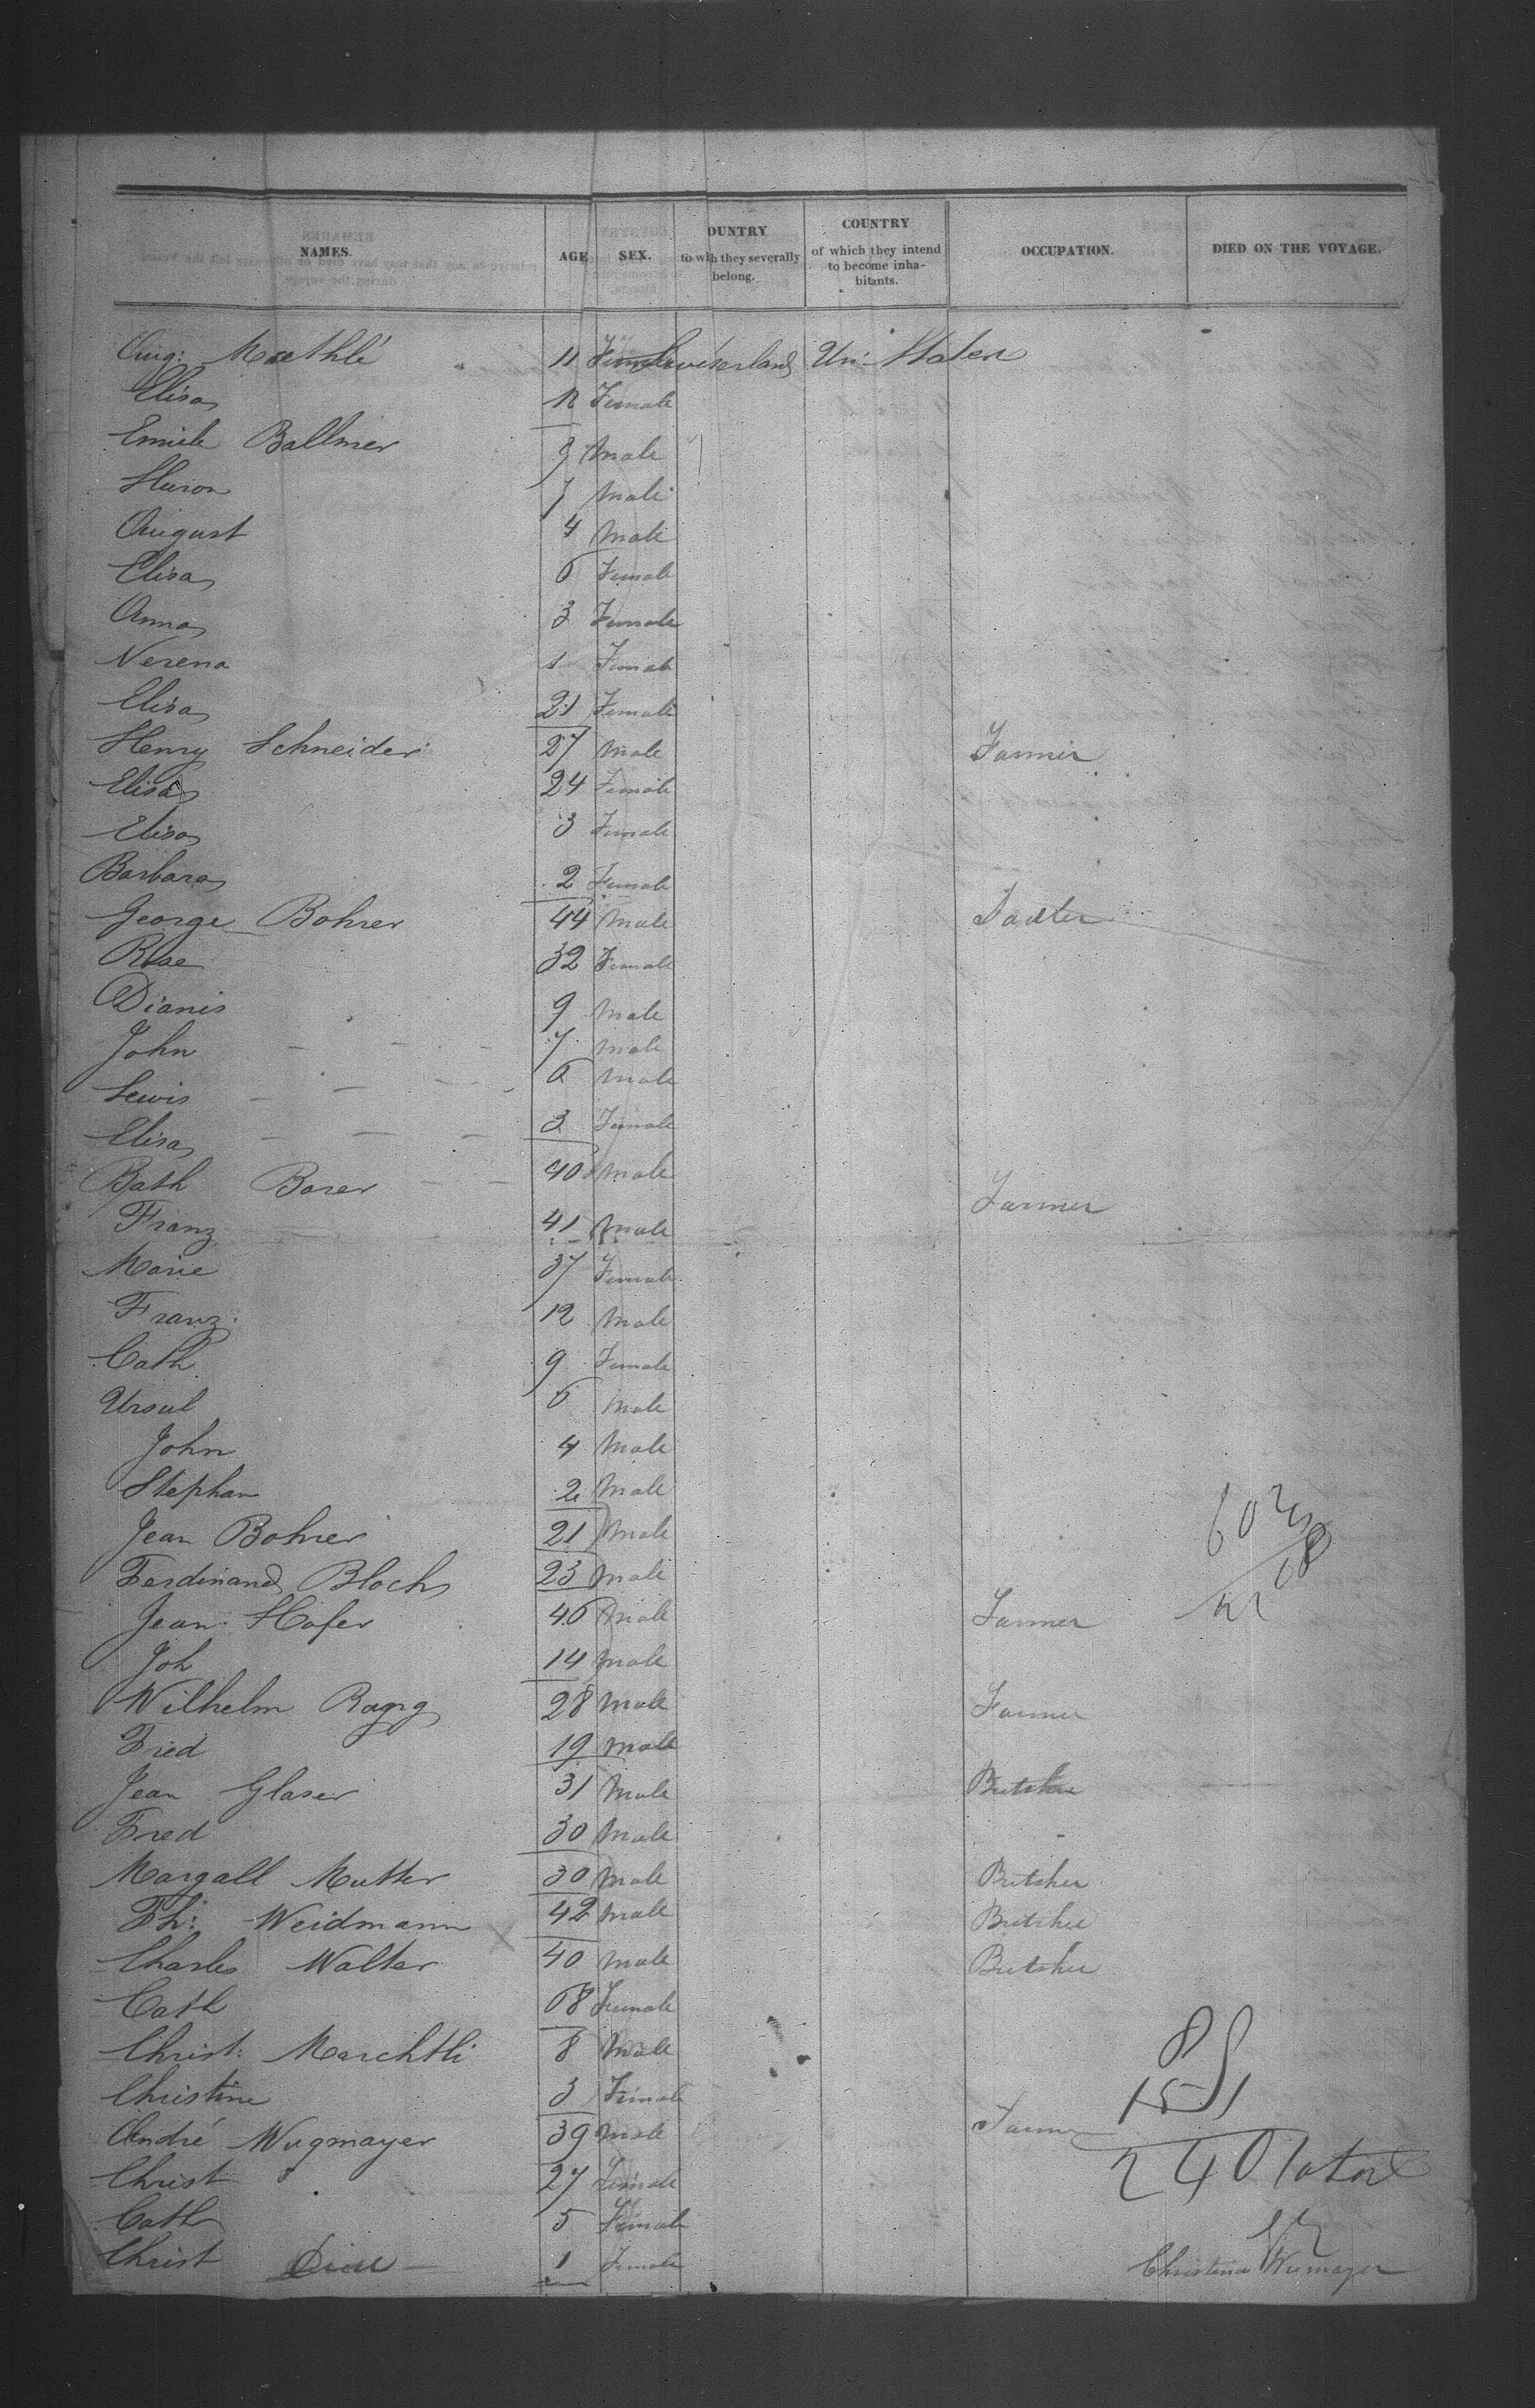 NAMES. AGE SEX. OUNTRY to wh h they severally belong. COUNTRY of which they intend to become inha- bitants. OCCUPATION. DIED ON THE VOYAGE.
Aug: Maethlé 11 Female Switserland Un: Staten
Elisa 11 Female
Emile Ballmer 9 Male
7 Male
August 4 Male
Elisa 6 Female
Anna 3 Female
Verena 1 Female
Elisa 21 Female
Henry Schneider 27 Male Farmer
Elisa 24 Female
Elisa 3 Female
Barbara 2 Female
George Bohrer 44 Male Sadler
Rose 32 Female
Dianis 9 Male
John 7 Male
Lewis 6 Male
Elisa 3 Female
Bath Borer 40 Male
Franz 41 Male Farmer
Marie 37 Female
Franz 12 Male
Cath 9 Female
Ursul 6 Male
John 4 Male
Stephan 2 Male
Jean Bohrer 21 Male
Ferdinand Bloch 23 Male
Jean Hofer 46 Male Farmer
Joh 14 Male
Wilhelm 28 Male Farmer
Fred 19 Male
Jean Glaser 31 Male Butcher
Fred 30 Male
Margall Mutter 30 Male Butcher
Fh: Weidmann 42 Male Butcher
Charles Walter 40 Male Butcher
Cath 68 Female
Christ: Marchtli 8 Male
Christine 3 Female
André Wugmayer 39 Male Farmer
Christ 27 Female
240 total
Cath 5 Female
Christ Died 1 Female Christina Wumayer